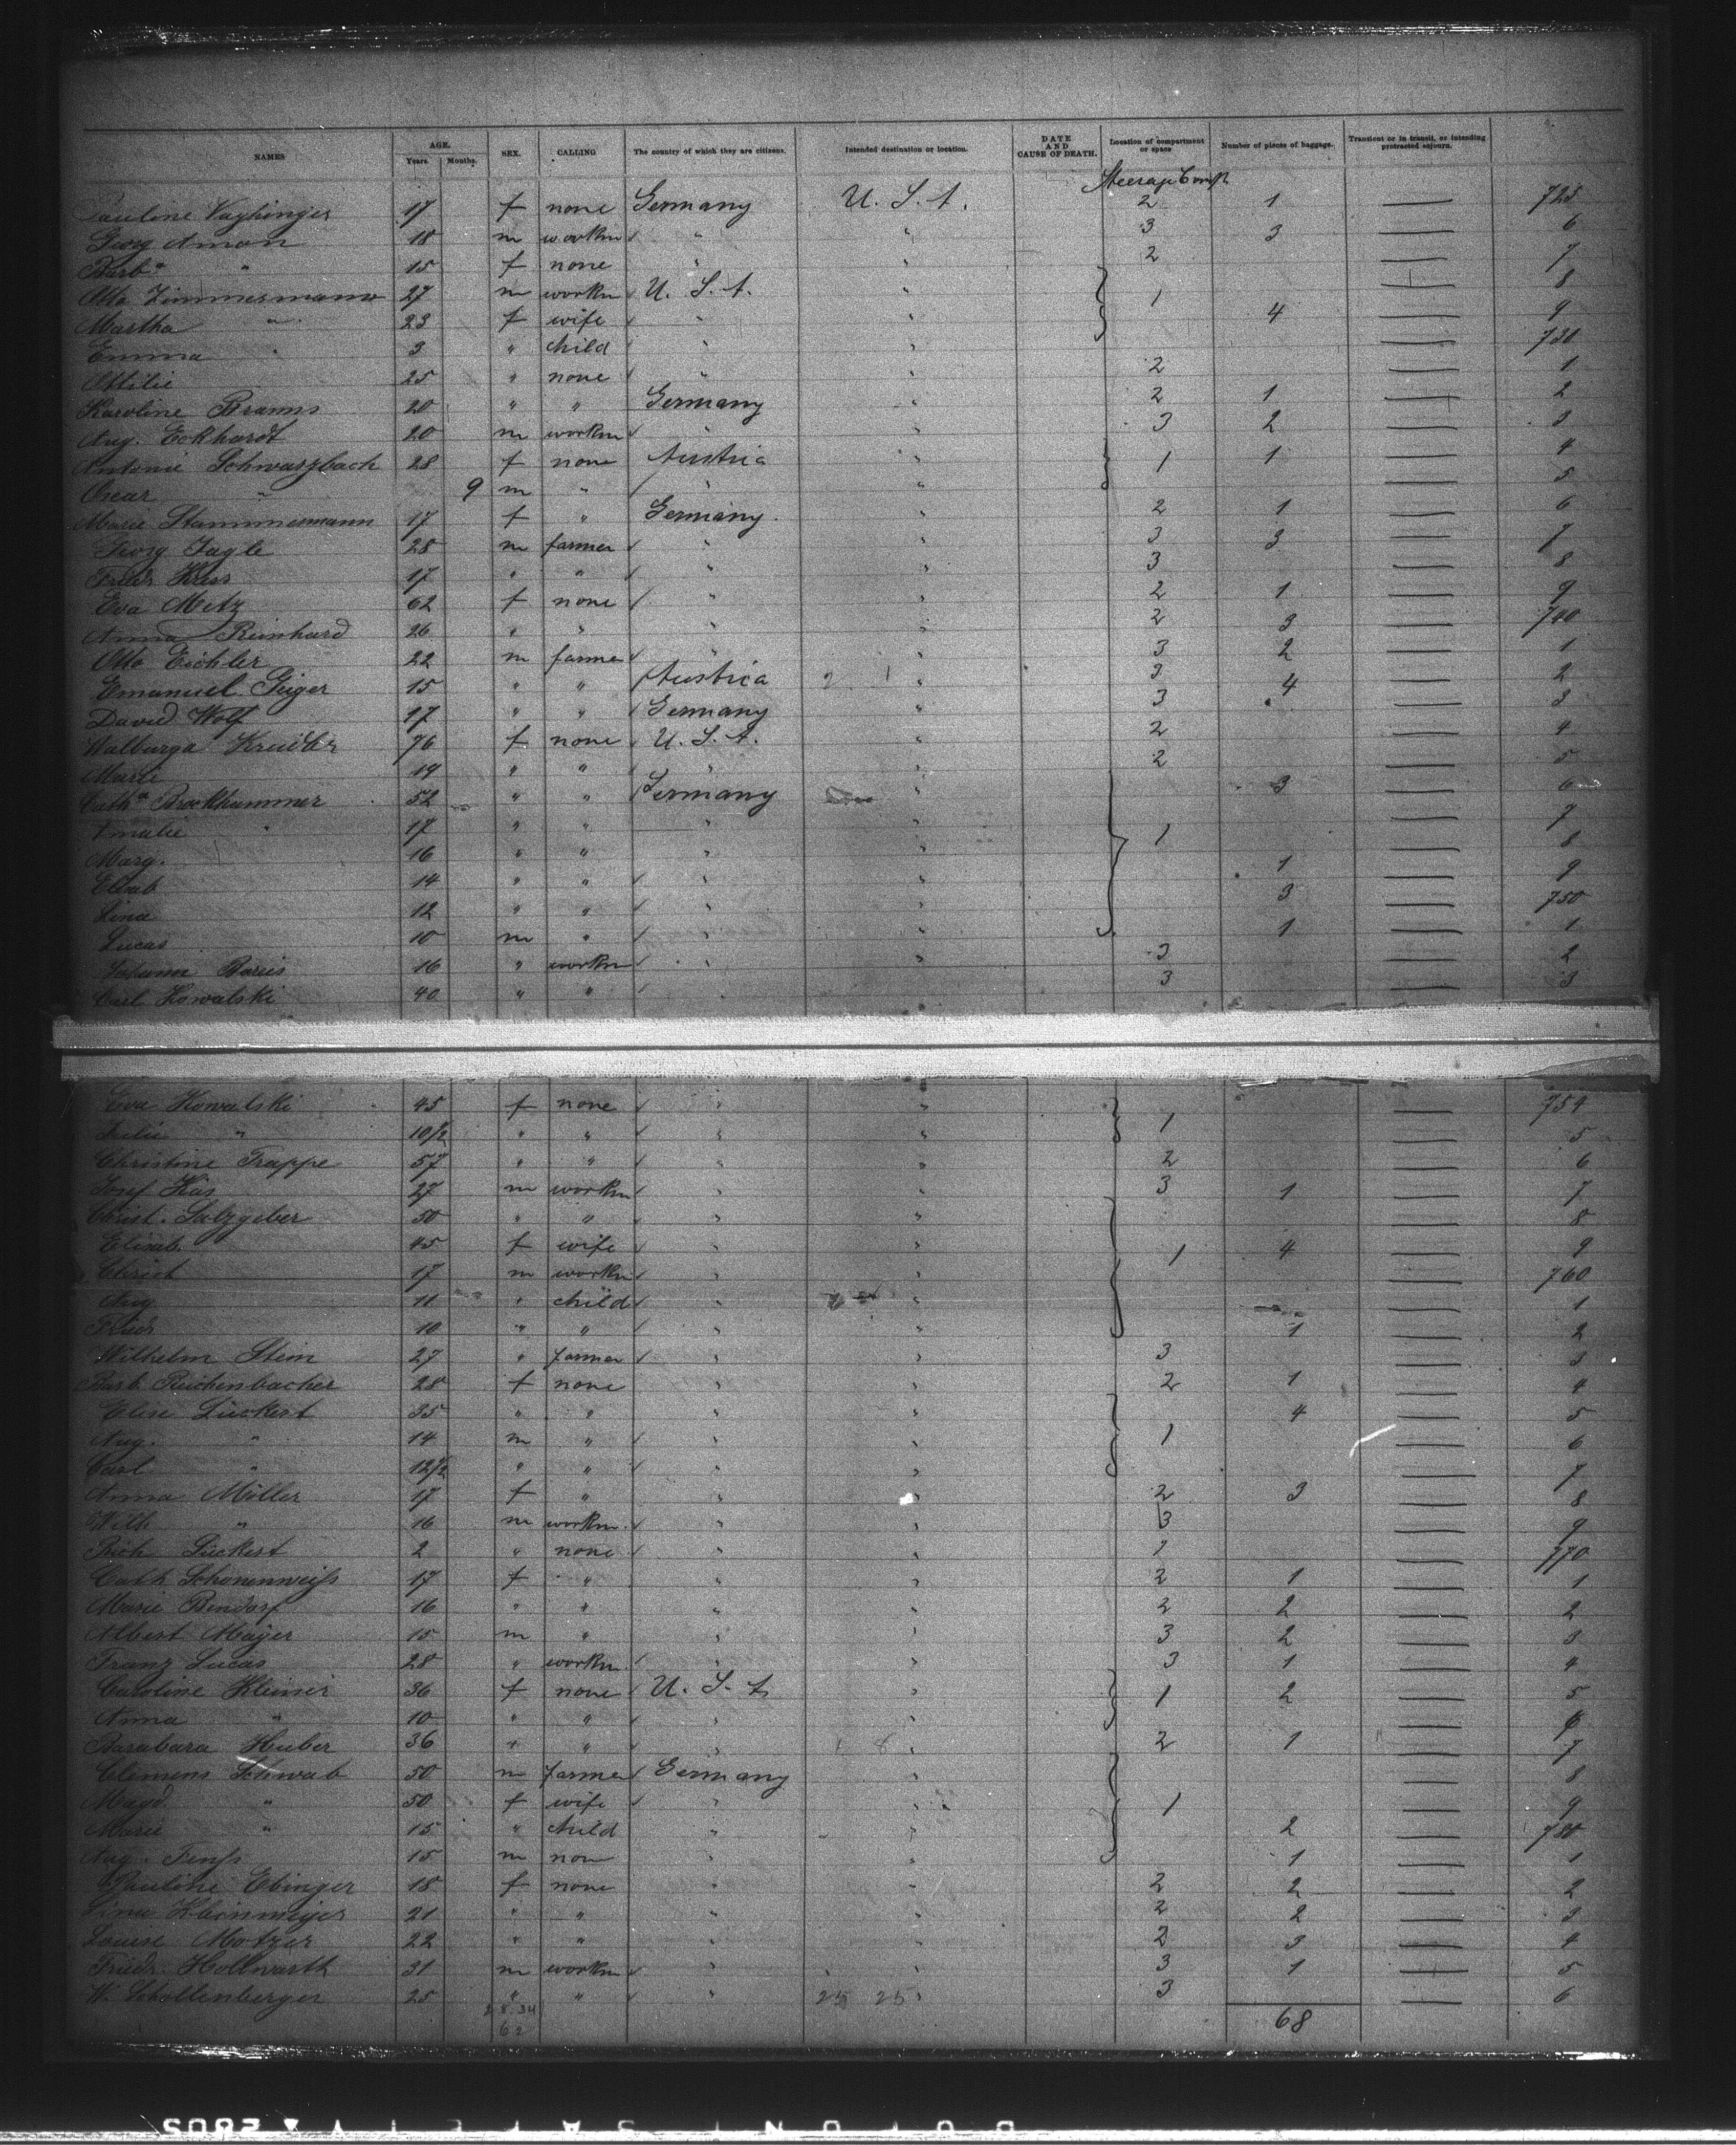 NAMES AGE. Years. Months. SEX. CALLING The country of which they are citizens. Intended destination or location. DATE AND CAUSE OF DEATH. Location of compartment or space Number of pieces of baggage. Transient or in transit, or intending protracted sojourn.
Steerage Compt
Pauline Vayhinger 17 f none Germany U. S. A. 2 1 — 725
Georg Amon 18 m workm " " 3 3 — 6
Barba " 15 f none " " 2 — 7
Otto Zimmermann 27 m workm U. S. A. " 1 — 8
Martha " 23 f wife " " 4 — 9
Emma " 3 " child " " — 730
Ottilie 25 " none " " 2 — 1
Karoline Bramm 20 " " Germany " 2 1 — 2
Aug. Eckhardt 20 m workm " " 3 2 — 3
Antonie Schwarzbach 28 f none Austria " 1 1 — 4
Oscar " 9 m " " " — 5
Marie Stammermann 17 f " Germany " 2 1 — 6
Georg Jagle 28 m farmer " " 3 3 — 7
Friedr Kress 17 " " " " 3 — 8
Eva Metz 62 f none " " 2 1 — 9
Anna Reinhard 26 " " " " 2 3 — 740
Otto Eichler 22 m farmer " " 3 2 — 1
Emanuel Geiger 15 " " Austria " 3 4 — 2
David Wolf 17 " " Germany " 3 — 3
Walburga 76 f none U. S. A. " 2 — 4
Marie 19 " " " " 2 — 5
Catha Brockhammer 52 " " Germany " 3 — 6
Amalie " 17 " " " " — 7
Marg. 16 " " " " 1 — 8
Elisab 14 " " " " 1 — 9
Lina 12 " " " " 3 — 750
Lucas 10 m " " " 1 — 1
Johann Bareis 16 " workm " " 3 — 2
Carl Kowalski 40 " " 3 — 3
Eva Kowalski 45 f none " " 1 — 754
Julie " 10/2 " " " " — 5
Christine Trappe 57 " " " " 2 — 6
Josef Käs 27 m workm " " 3 1 — 7
Christ. Salzgeber 50 " " " " — 8
Elisab. 45 f wife " " 1 4 — 9
Christ 17 m workm " " — 760
Aug 11 " child " " — 1
Friedr 10 " " " " 1 — 2
Wilhelm Stein 27 " farmer " " 3 — 3
Barb. Reichenbacher 28 f none " " 2 1 — 4
Elise Lückert 35 " " " " 4 — 5
Aug. " 14 m " " " 1 — 6
Carl " 12/2 " " " " — 7
Anna Möller 17 f " " " 2 3 — 8
Wilh " 16 m workm " " 3 — 9
Rich Lückert 2 " none " " 1 — 770
Cath Schonenweiss 17 f " " " 2 1 — 1
Marie Bendorf 16 " " " " 2 2 — 2
Albert Mayer 15 m " " " 3 2 — 3
Franz Lucas 28 " workm " " 3 1 — 4
Caroline Kleiner 36 f none U. S. A " 1 2 — 5
Anna " 10 " " " " — 6
Barabara Huber 36 " " " " 2 1 — 7
Clemens Schwab 50 m farmer Germany " — 8
Magd " 50 f wife " " 1 — 9
Marie " 15 " child " " 2 — 780
Aug. 15 m non " " 1 — 1
Pauline Ebinger 18 f none " " 2 2 — 2
Lina Kleinmeyer 21 " " " " 2 2 — 3
Louise Motzer 22 " " " " 2 3 — 4
Friedr. Hollwarth 31 m workm " " 3 1 — 5
W. Schollenberger 25 " " " 25 25 " 3 — 6
28.34
62
68